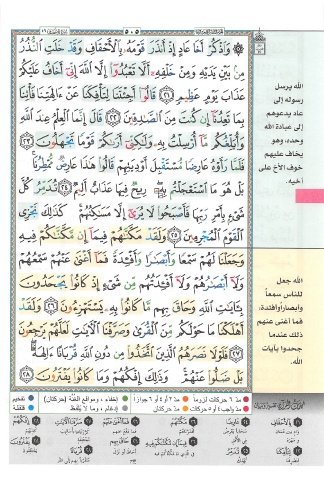 ٥٠٥
وَٱذْكُرْ أَخَا عَادٍ إِذْ أَنذَرَ قَوْمَهُۥ بِٱلْأَحْقَافِ وَقَدْ خَلَتِ ٱلنُّذُرُ
مِنۢ بَيْنِ يَدَيْهِ وَمِنْ خَلْفِهِۦٓ أَلَّا تَعْبُدُوٓا۟ إِلَّا ٱللَّهَ إِنِّىٓ أَخَافُ عَلَيْكُمْ
عَذَابَ يَوْمٍ عَظِيمٍ ٢١ قَالُوٓا۟ أَجِئْتَنَا لِتَأْفِكَنَا عَنْ ءَالِهَتِنَا فَأْتِنَا
بِمَا تَعِدُنَآ إِن كُنتَ مِنَ ٱلصَّـٰدِقِينَ ٢٢ قَالَ إِنَّمَا ٱلْعِلْمُ عِندَ ٱللَّهِ
وَأُبَلِّغُكُم مَّآ أُرْسِلْتُ بِهِۦ وَلَـٰكِنِّىٓ أَرَىٰكُمْ قَوْمًا تَجْهَلُونَ ٢٣
فَلَمَّا رَأَوْهُ عَارِضًا مُّسْتَقْبِلَ أَوْدِيَتِهِمْ قَالُوا۟ هَـٰذَا عَارِضٌ مُّمْطِرُنَا ۚ
بَلْ هُوَ مَا ٱسْتَعْجَلْتُم بِهِۦ ۖ رِيحٌ فِيهَا عَذَابٌ أَلِيمٌ ٢٤ تُدَمِّرُ كُلَّ
شَىْءٍۭ بِأَمْرِ رَبِّهَا فَأَصْبَحُوا۟ لَا يُرَىٰٓ إِلَّا مَسَـٰكِنُهُمْ ۚ كَذَٰلِكَ نَجْزِى
ٱلْقَوْمَ ٱلْمُجْرِمِينَ ٢٥ وَلَقَدْ مَكَّنَّـٰهُمْ فِيمَآ إِن مَّكَّنَّـٰكُمْ فِيهِ
وَجَعَلْنَا لَهُمْ سَمْعًا وَأَبْصَـٰرًا وَأَفْـِٔدَةً فَمَآ أَغْنَىٰ عَنْهُمْ سَمْعُهُمْ
وَلَآ أَبْصَـٰرُهُمْ وَلَآ أَفْـِٔدَتُهُم مِّن شَىْءٍ إِذْ كَانُوا۟ يَجْحَدُونَ
بِـَٔايَـٰتِ ٱللَّهِ وَحَاقَ بِهِم مَّا كَانُوا۟ بِهِۦ يَسْتَهْزِءُونَ ٢٦ وَلَقَدْ
أَهْلَكْنَا مَا حَوْلَكُم مِّنَ ٱلْقُرَىٰ وَصَرَّفْنَا ٱلْـَٔايَـٰتِ لَعَلَّهُمْ يَرْجِعُونَ
٢٧ فَلَوْلَا نَصَرَهُمُ ٱلَّذِينَ ٱتَّخَذُوا۟ مِن دُونِ ٱللَّهِ قُرْبَانًا ءَالِهَةًۢ ۖ
بَلْ ضَلُّوا۟ عَنْهُمْ ۚ وَذَٰلِكَ إِفْكُهُمْ وَمَا كَانُوا۟ يَفْتَرُونَ ٢٨
الله يرسل
رسوله إلى
عاد يدعوهم
إلى عبادة الله
وحده، وهو
يخاف عليهم
خوف الأخ على
أخيه.
الله جعل
للناس سمعاً
وأبصاراً وأفئدة،
فما أغنى عنهم
ذلك عندما
جحدوا بآيات
الله.
مد ٦ حركات لزوماً
مد ٢ أو ٤ أو ٦ جوازاً
إخفاء، ومواقع الغنة (حركتان)
تفخيم
مد حركتان
إدغام، وما لا يلفظ
قلقلة